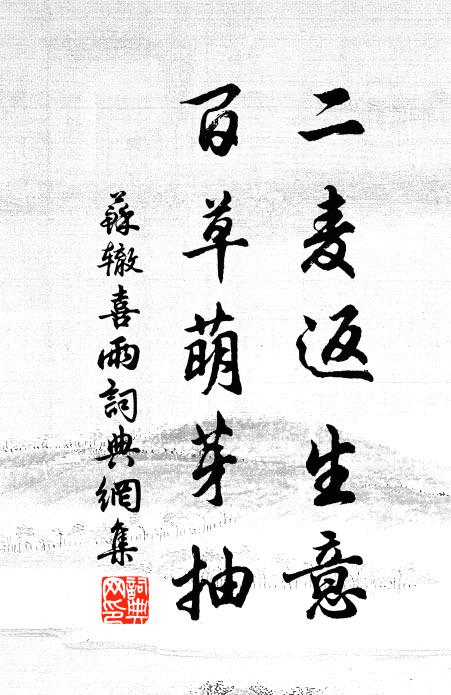 二麦返生意
百草萌芽抽
蘇辙喜雨詞典網集
詞典网印